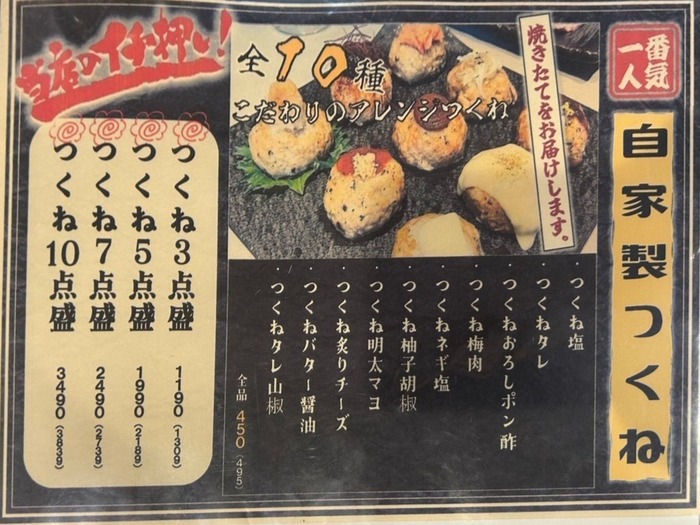 一番人気
自家製つくね
焼きたてをお届けします。
全10種
こだわりのアレンジつくね
・つくね塩
・つくねタレ
・つくねおろしポン酢
・つくね梅肉
・つくねネギ塩
・つくね柚子胡椒
・つくね明太マヨ
・つくね炙りチーズ
・つくねバター醤油
・つくねタレ山椒
全品 450(495)
当店のイチ押い!
つくね3点盛 1190(1309)
つくね5点盛 1990(2189)
つくね7点盛 2490(2739)
つくね10点盛 3490(3839)